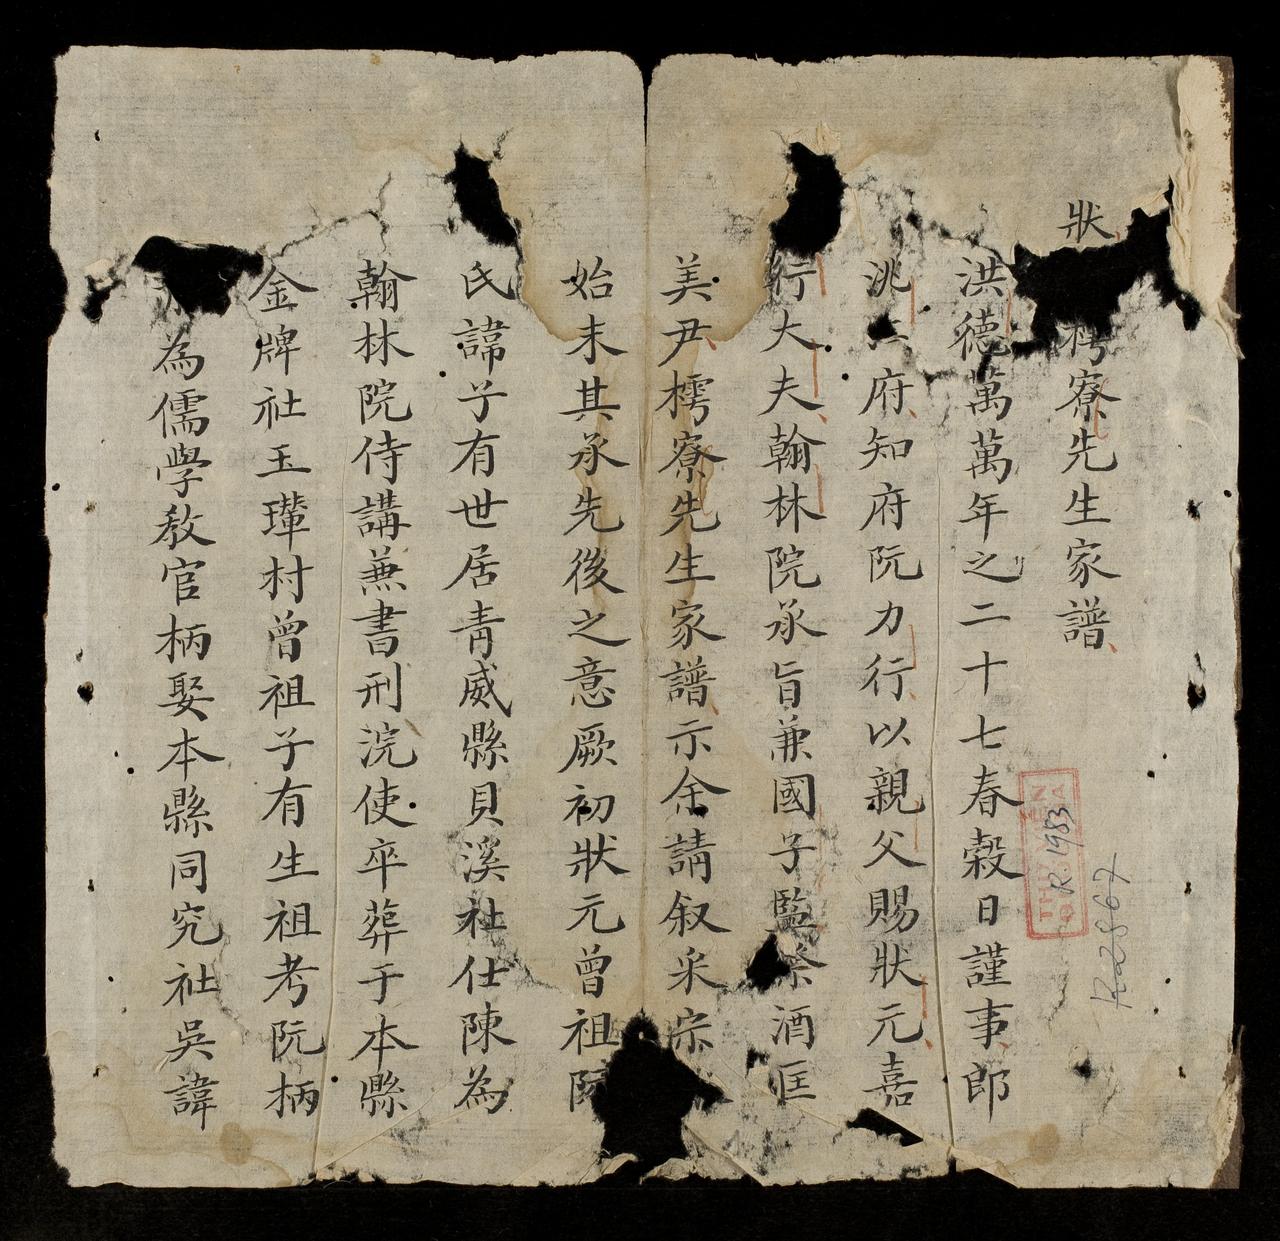 狀 樗寮先生家譜
洪德萬萬年之二十七春穀日謹事郎
洮 府知府阮力行以親父賜狀元嘉
行大夫翰林院承旨兼國子監祭酒匡
美尹樗寮先生家譜示余請叙采宗
始末其承先後之意厥初狀元曾祖阮
氏諱子有世居青威縣貝溪社仕陳為
翰林院侍講蕪書刑浣使卒葬于本縣
金牌社玉瓘村曾祖子有生祖考阮柄
為儒學教官柄娶本縣同究社吳諱
THU VIEN
R.1983
R25867